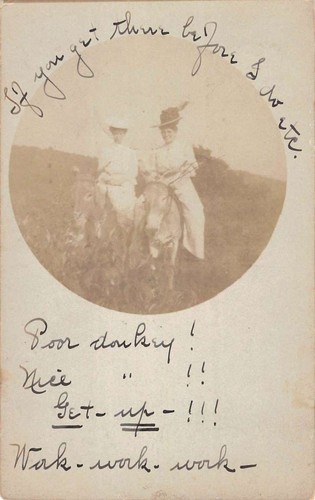 If you get there before I do etc.
Poor donkey!
Nice " !!
Get-up-!!!
Work-work-work-